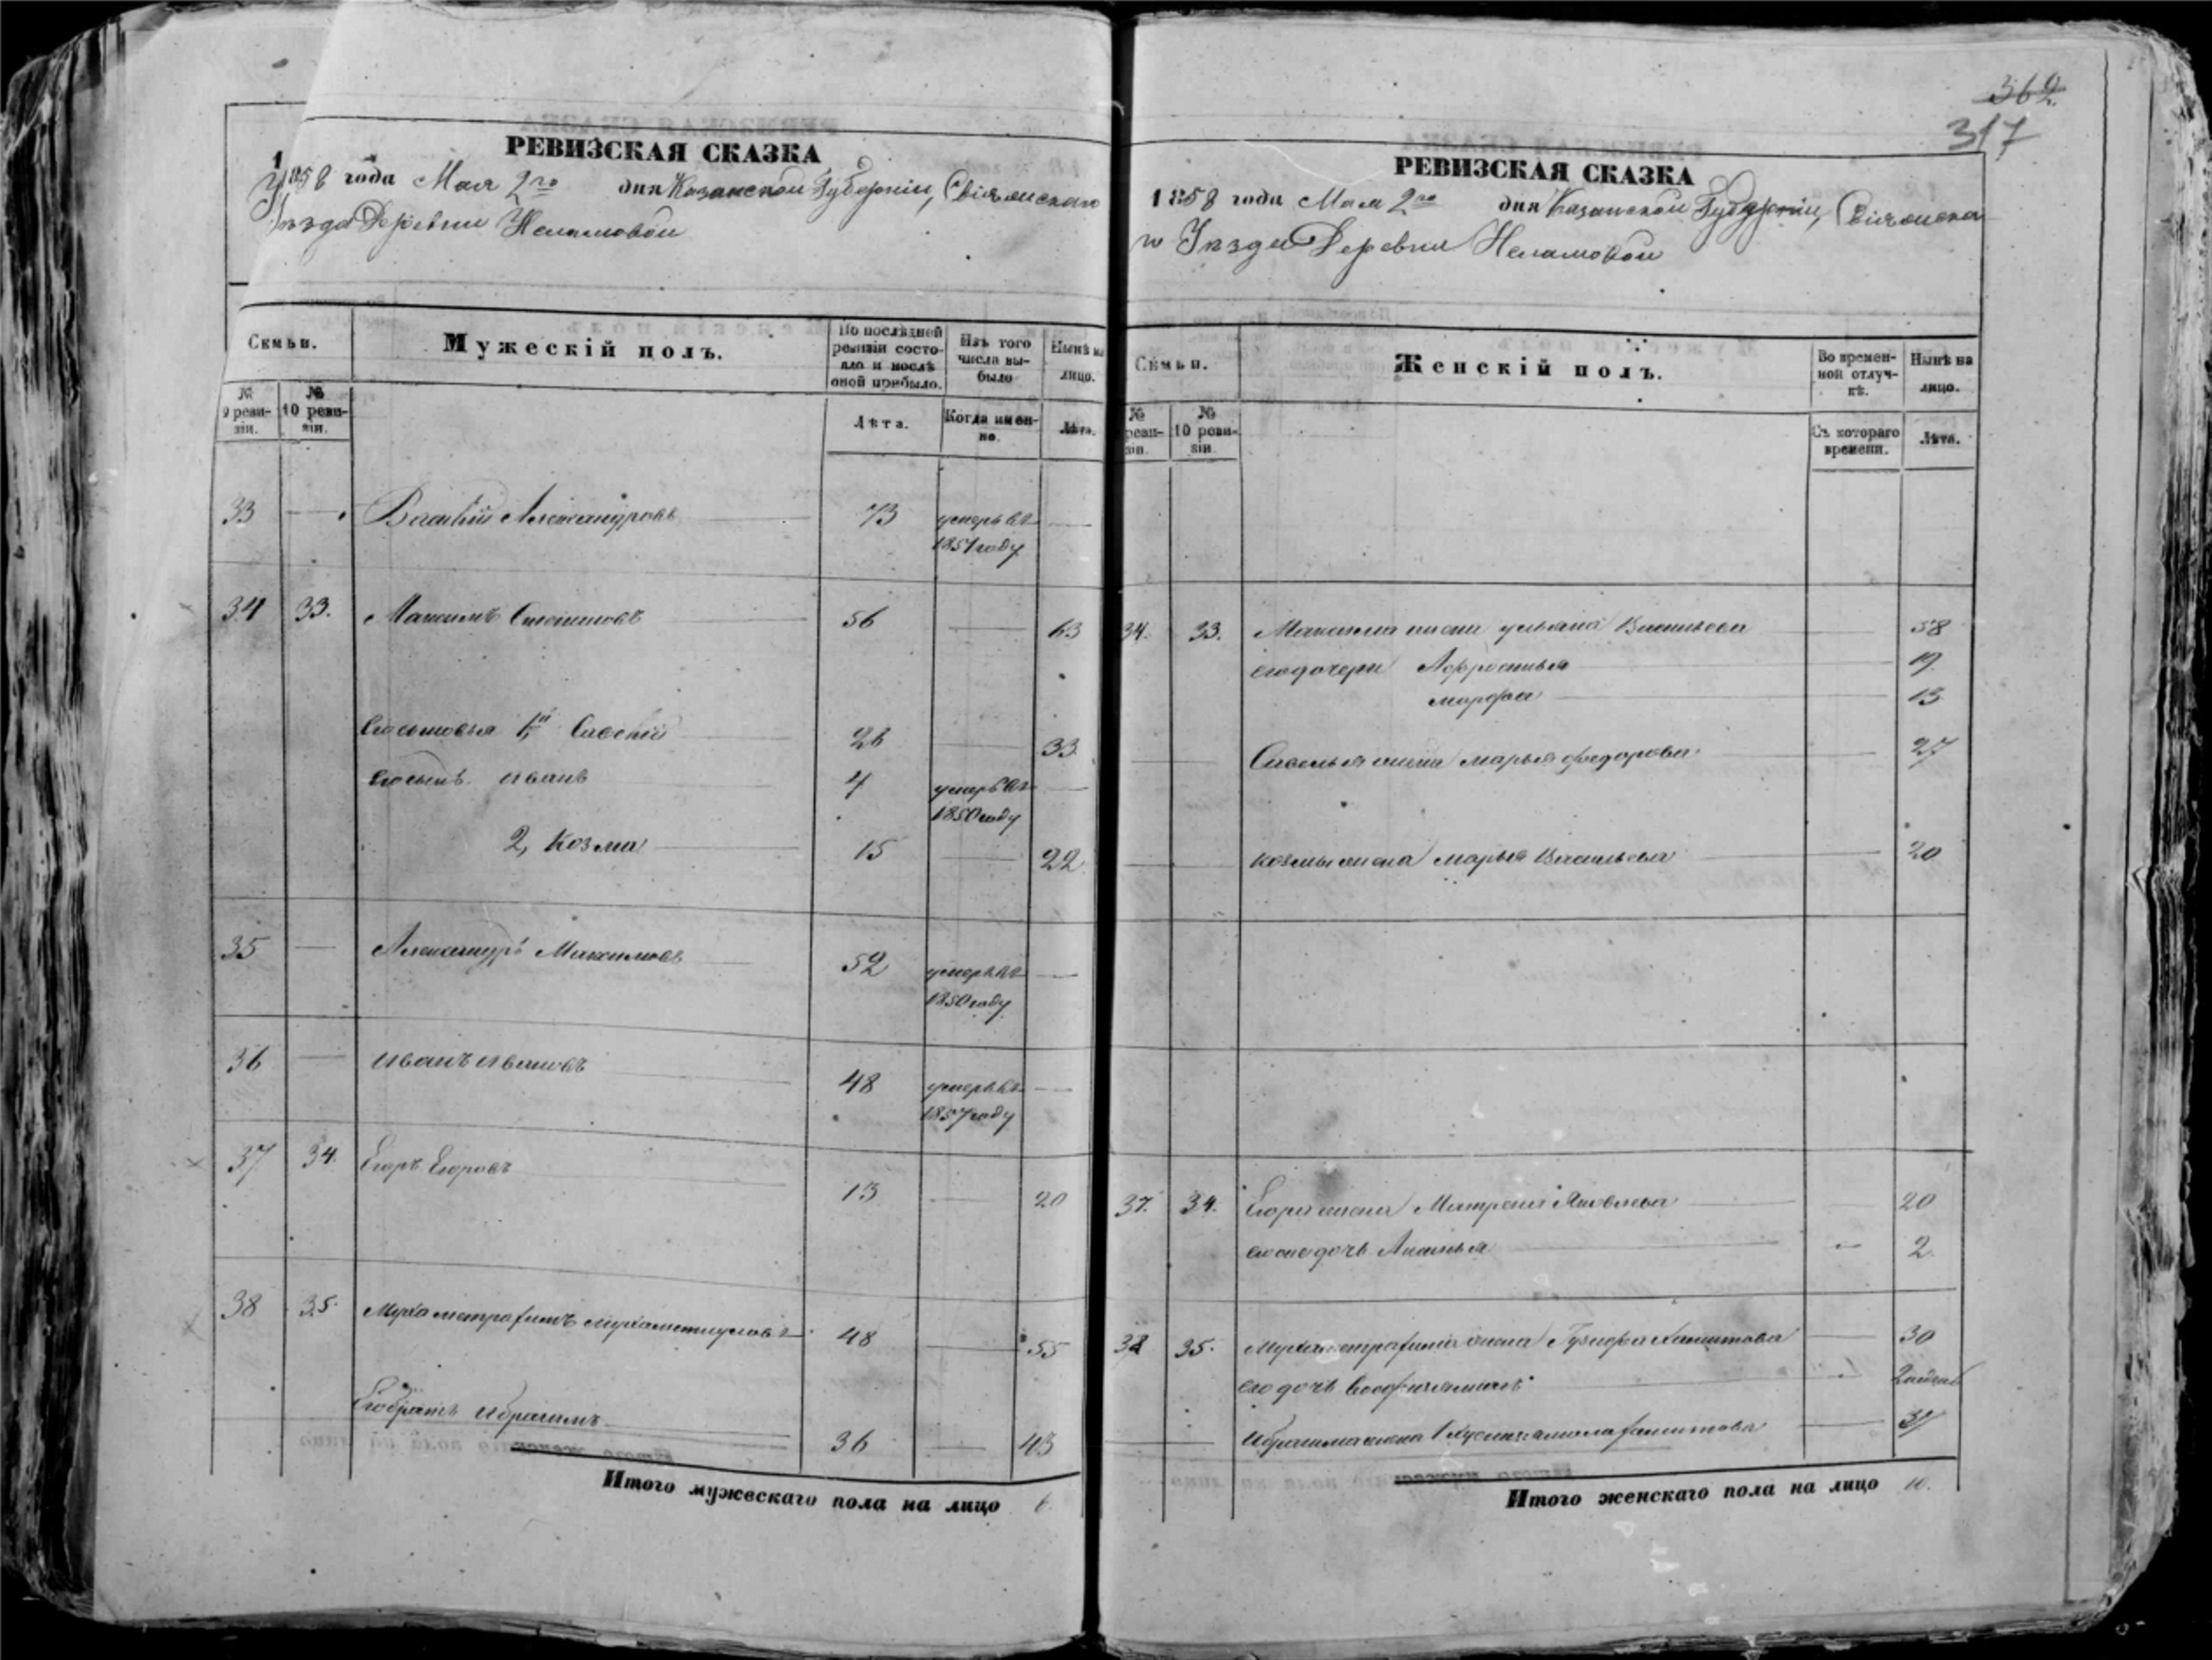 362.
317
РЕВИЗСКАЯ СКАЗКА
1858 года Мая 2го дня Казанской Губернии, Свіяжскаго
Уѣзда Деревни
Семьи.
Мужескій полъ.
По послѣдней ревизіи состояло и послѣ оной прибыло.
Изъ того числа выбыло
Нынѣ на лицо.
№ 9 ревизіи.
№ 10 ревизіи.
Лѣта.
Когда именно.
Лѣта.
33 — Василій Александровъ 73 умеръ въ —
1851 году
34 33. Максимъ Степановъ 56 — 63
Его сыновья 1й Савелій 26 — 33.
Его сынъ Иванъ 4 умеръ въ —
1850 году
2, Козма 15 — 22
35 — Александръ Максимовъ 52 умеръ въ —
1850 году
36 — Иванъ Ивановъ 48 умеръ въ —
1857 году
37 34. Егоръ Егоровъ 13 — 20
38 35. 48 — 55
Его братъ Ибрагимъ 36 — 43
Итого мужескаго пола на лицо 6.
РЕВИЗСКАЯ СКАЗКА
1858 года Мая 2го дня Казанской Губерніи, Свіяжска
го Уѣзда Деревни
Семьи.
Женскій полъ.
Во временной отлучкѣ.
Нынѣ на лицо.
№ ревизіи.
№ 10 ревизіи.
Съ котораго времени.
Лѣта.
34. 33. Максима жена Ульяна Васильева — 58
его дочери Афросинья — 19.
Марфа — 13
Савелья жена Марья Федорова — 27
Козмы жена Марья Васильева — 20
37. 34. Егора жена Матрена Яковлева — 20
его же дочь — 2.
38 35. жена — 30
его дочь
Ибрагима жена — 37
Итого женскаго пола на лицо 10.